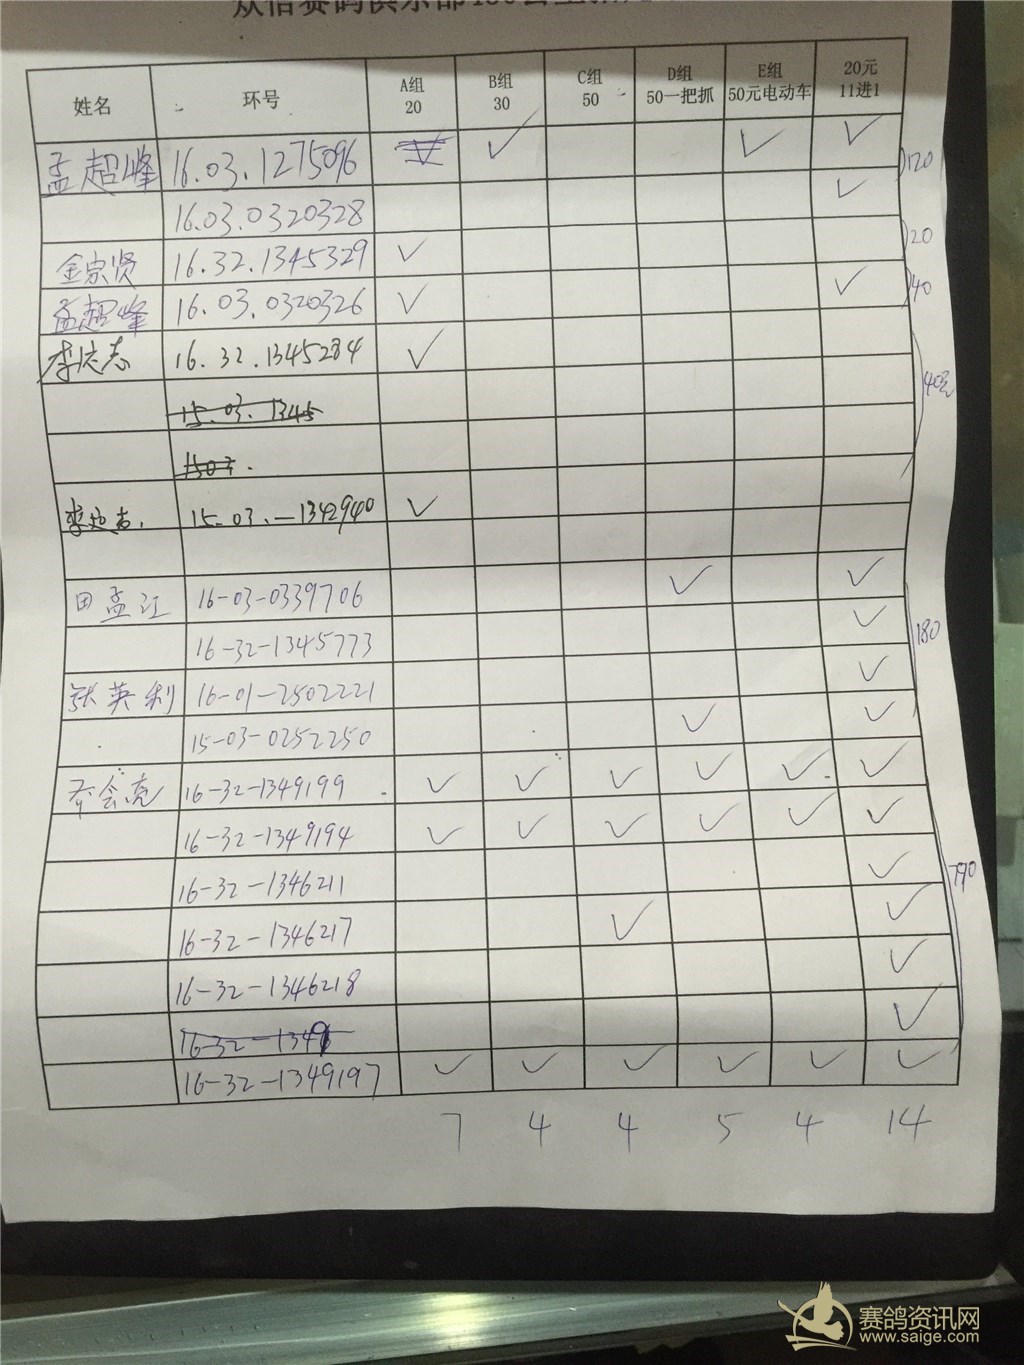 姓名 环号 A组 B组 C组 D组 E组 20元
20 30 50 50一把抓 50元电动车 11进1
孟超峰 16.03.1275096 ✓ ✓ ✓ ✓ 120
16.03.0320328 ✓
金宗贤 16.32.1345329 ✓ 20
孟超峰 16.03.0320326 ✓ ✓ 40
李志 16.32.1345284 ✓ 40元
15.03.1345
李 15-03.—1342940 ✓
田孟江 16-03-0339706 ✓ ✓ 180
16-32-1345773 ✓
张英利 16-01-2502221 ✓
15-03-0252250 ✓ ✓
乔会亮 16-32-1349199 ✓ ✓ ✓ ✓ ✓ ✓ 790
16-32-1349194 ✓ ✓ ✓ ✓ ✓ ✓
16-32-1346211 ✓
16-32-1346217 ✓ ✓
16-32-1346218 ✓
16-32-1349 ✓
16-32-1349197 ✓ ✓ ✓ ✓ ✓ ✓
7 4 4 5 4 14
赛鸽资讯网
www.saige.com